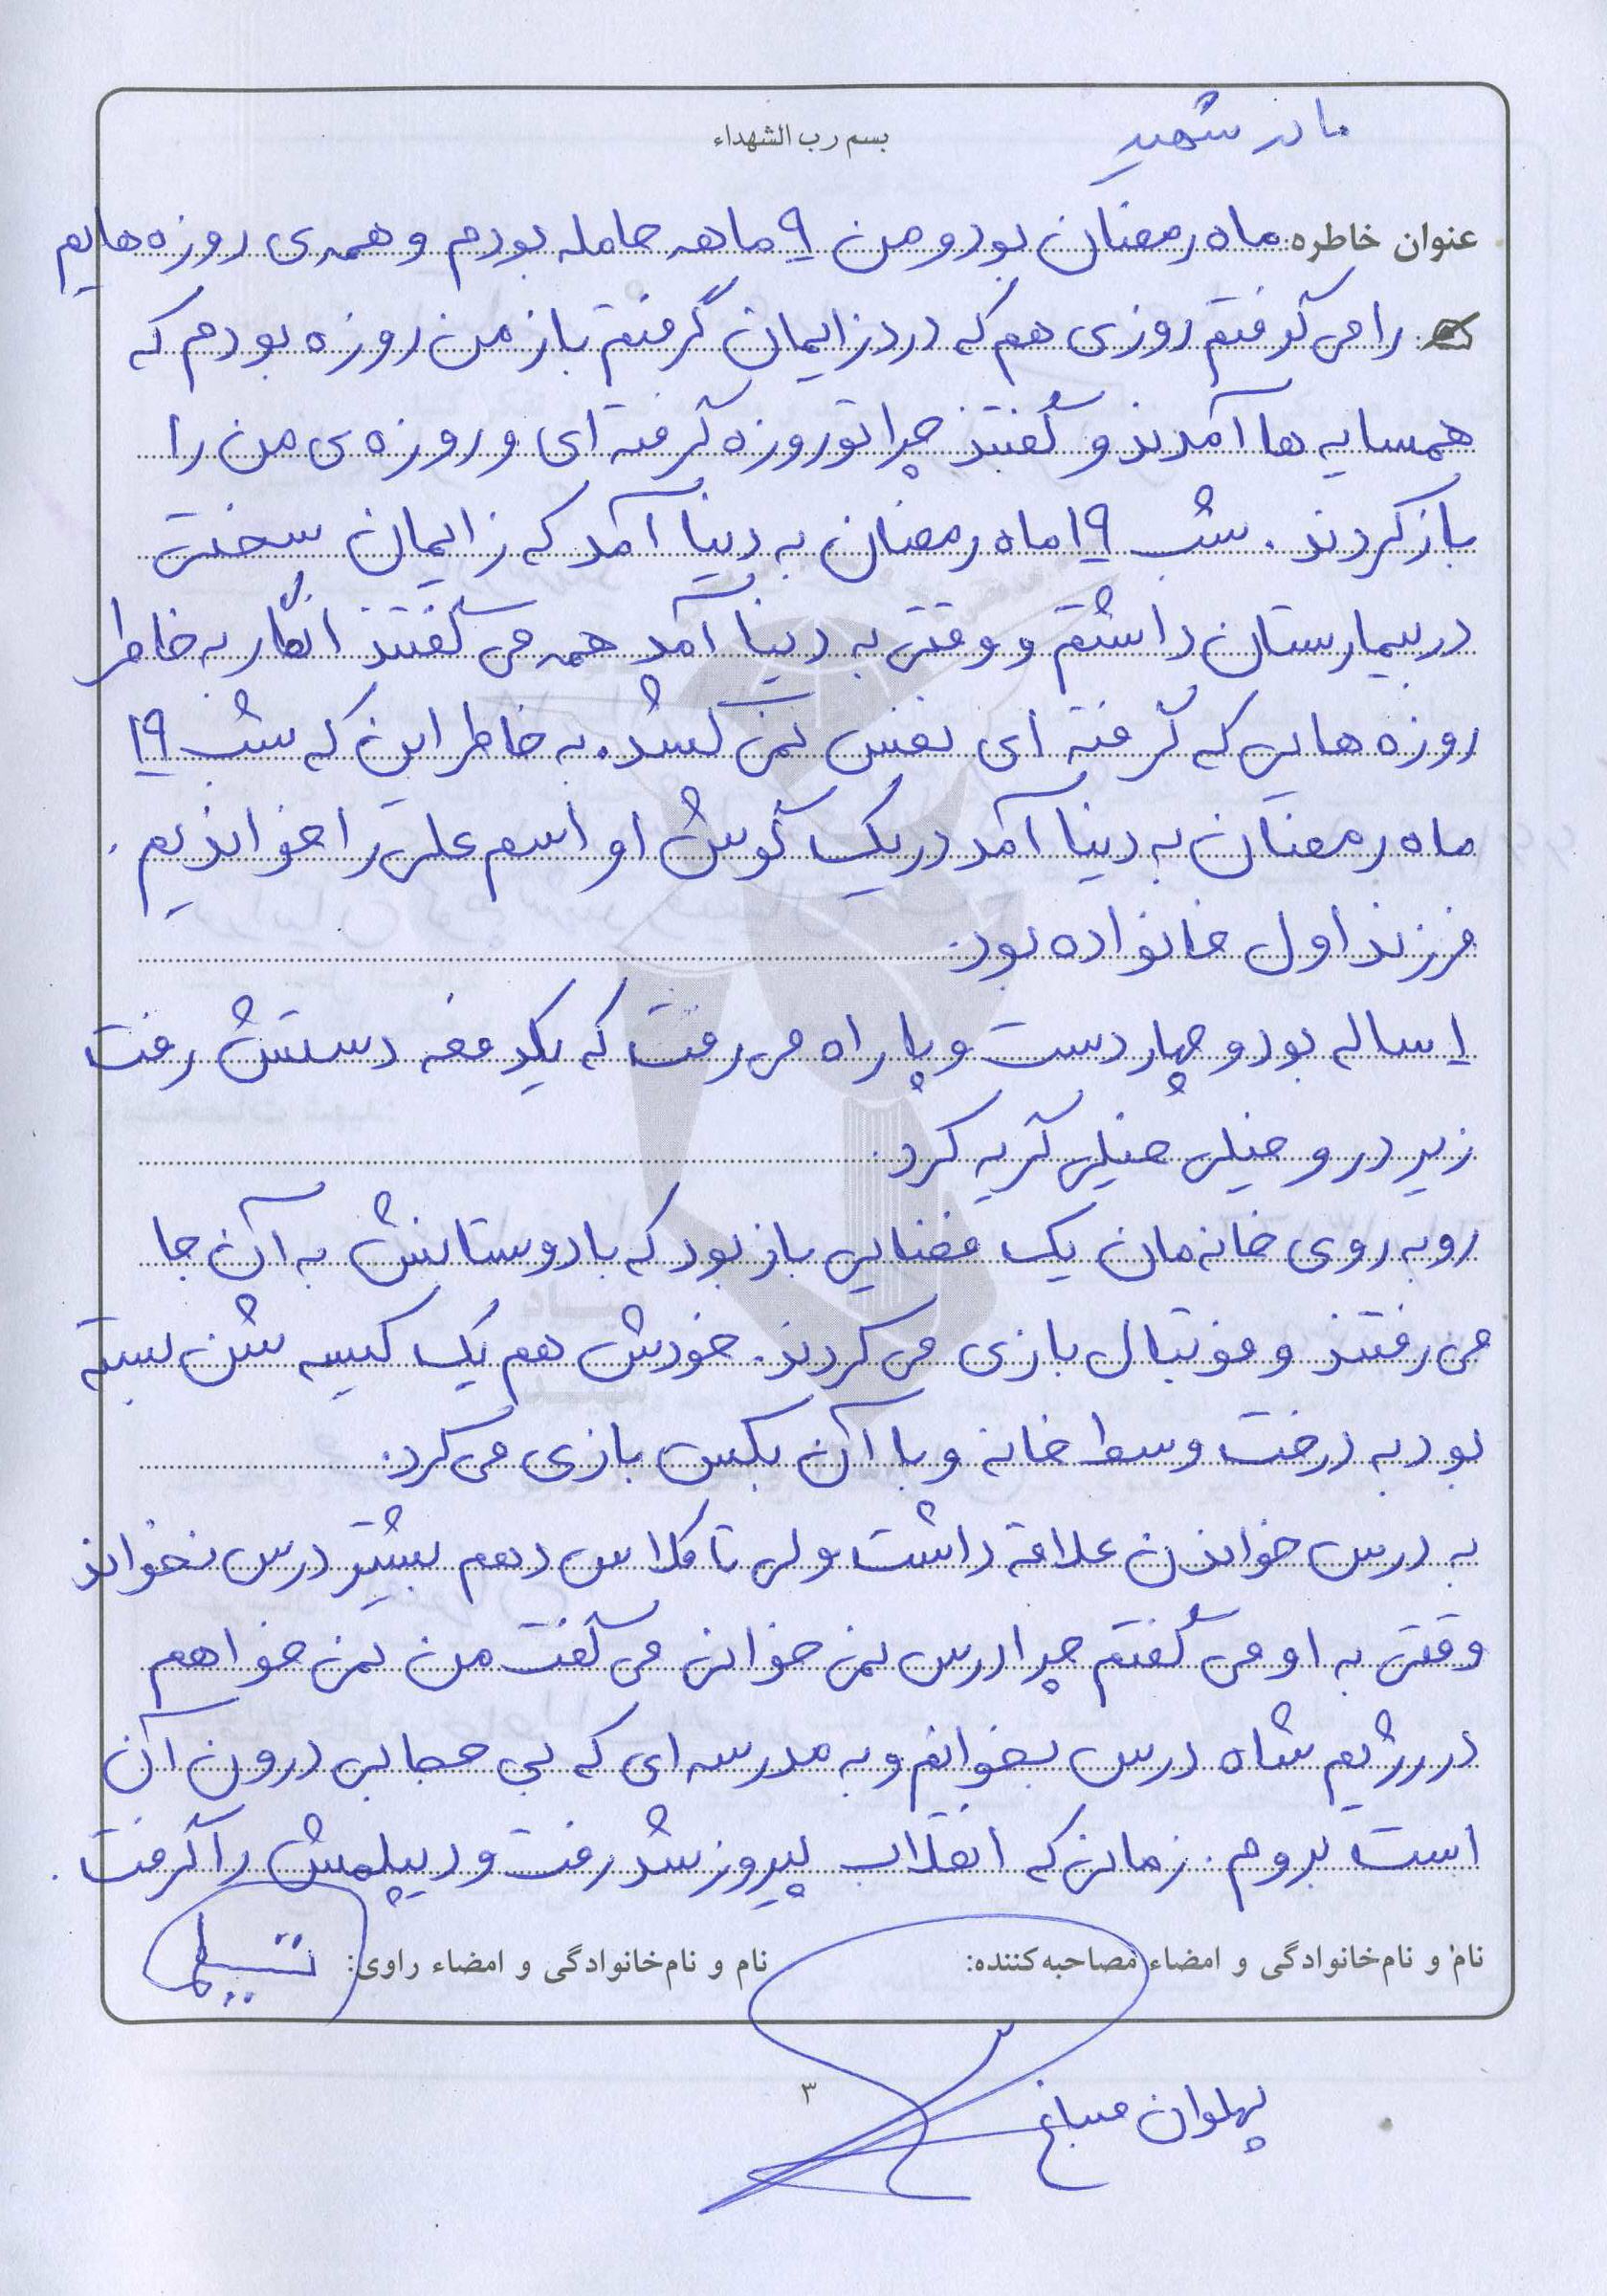 مادر شهید
بسم رب الشهداء
عنوان خاطره: ماه رمضان بود و من ۹ ماهه حامله بودم و همه‌ی روزه هایم
را می گرفتم روزی هم که درد زایمان گرفتم باز من روزه بودم که
همسایه ها آمدند و گفتند چرا تو روزه گرفته ای و روزه ی من را
باز کردند. شب ۱۹ ماه رمضان به دنیا آمد که زایمان سختی
در بیمارستان داشتم و وقتی به دنیا آمد همه می گفتند انگار به خاطر
روزه هایی که گرفته ای نفس نمی کشد. به خاطر این که شب ۱۹
ماه رمضان به دنیا آمد در یک گوش او اسم علی را خواندیم.
فرزند اول خانواده بود.
۱ ساله بود و چهار دست و پا راه می رفت که یکدفعه دستش رفت
زیر در و خیلی خیلی گریه کرد.
روبه روی خانه مان یک فضایی باز بود که با دوستانش به آن جا
می رفتند و فوتبال بازی می کردند. خودش هم یک کیسه شن بسته
بود به درخت وسط خانه و با آن بکس بازی می کرد.
به درس خواندن علاقه داشت ولی تا کلاس دهم بیشتر درس نخواند
وقتی به او می گفتم چرا درس نمی خوانی می گفت من نمی خواهم
در رژیم شاه درس بخوانم و به مدرسه ای که بی حجابی درون آن
است بروم. زمانی که انقلاب پیروز شد رفت و دیپلمش را گرفت.
نام و نام‌خانوادگی و امضاء مصاحبه‌کننده: نام و نام‌خانوادگی و امضاء راوی:
۳
پهلوان صباغ